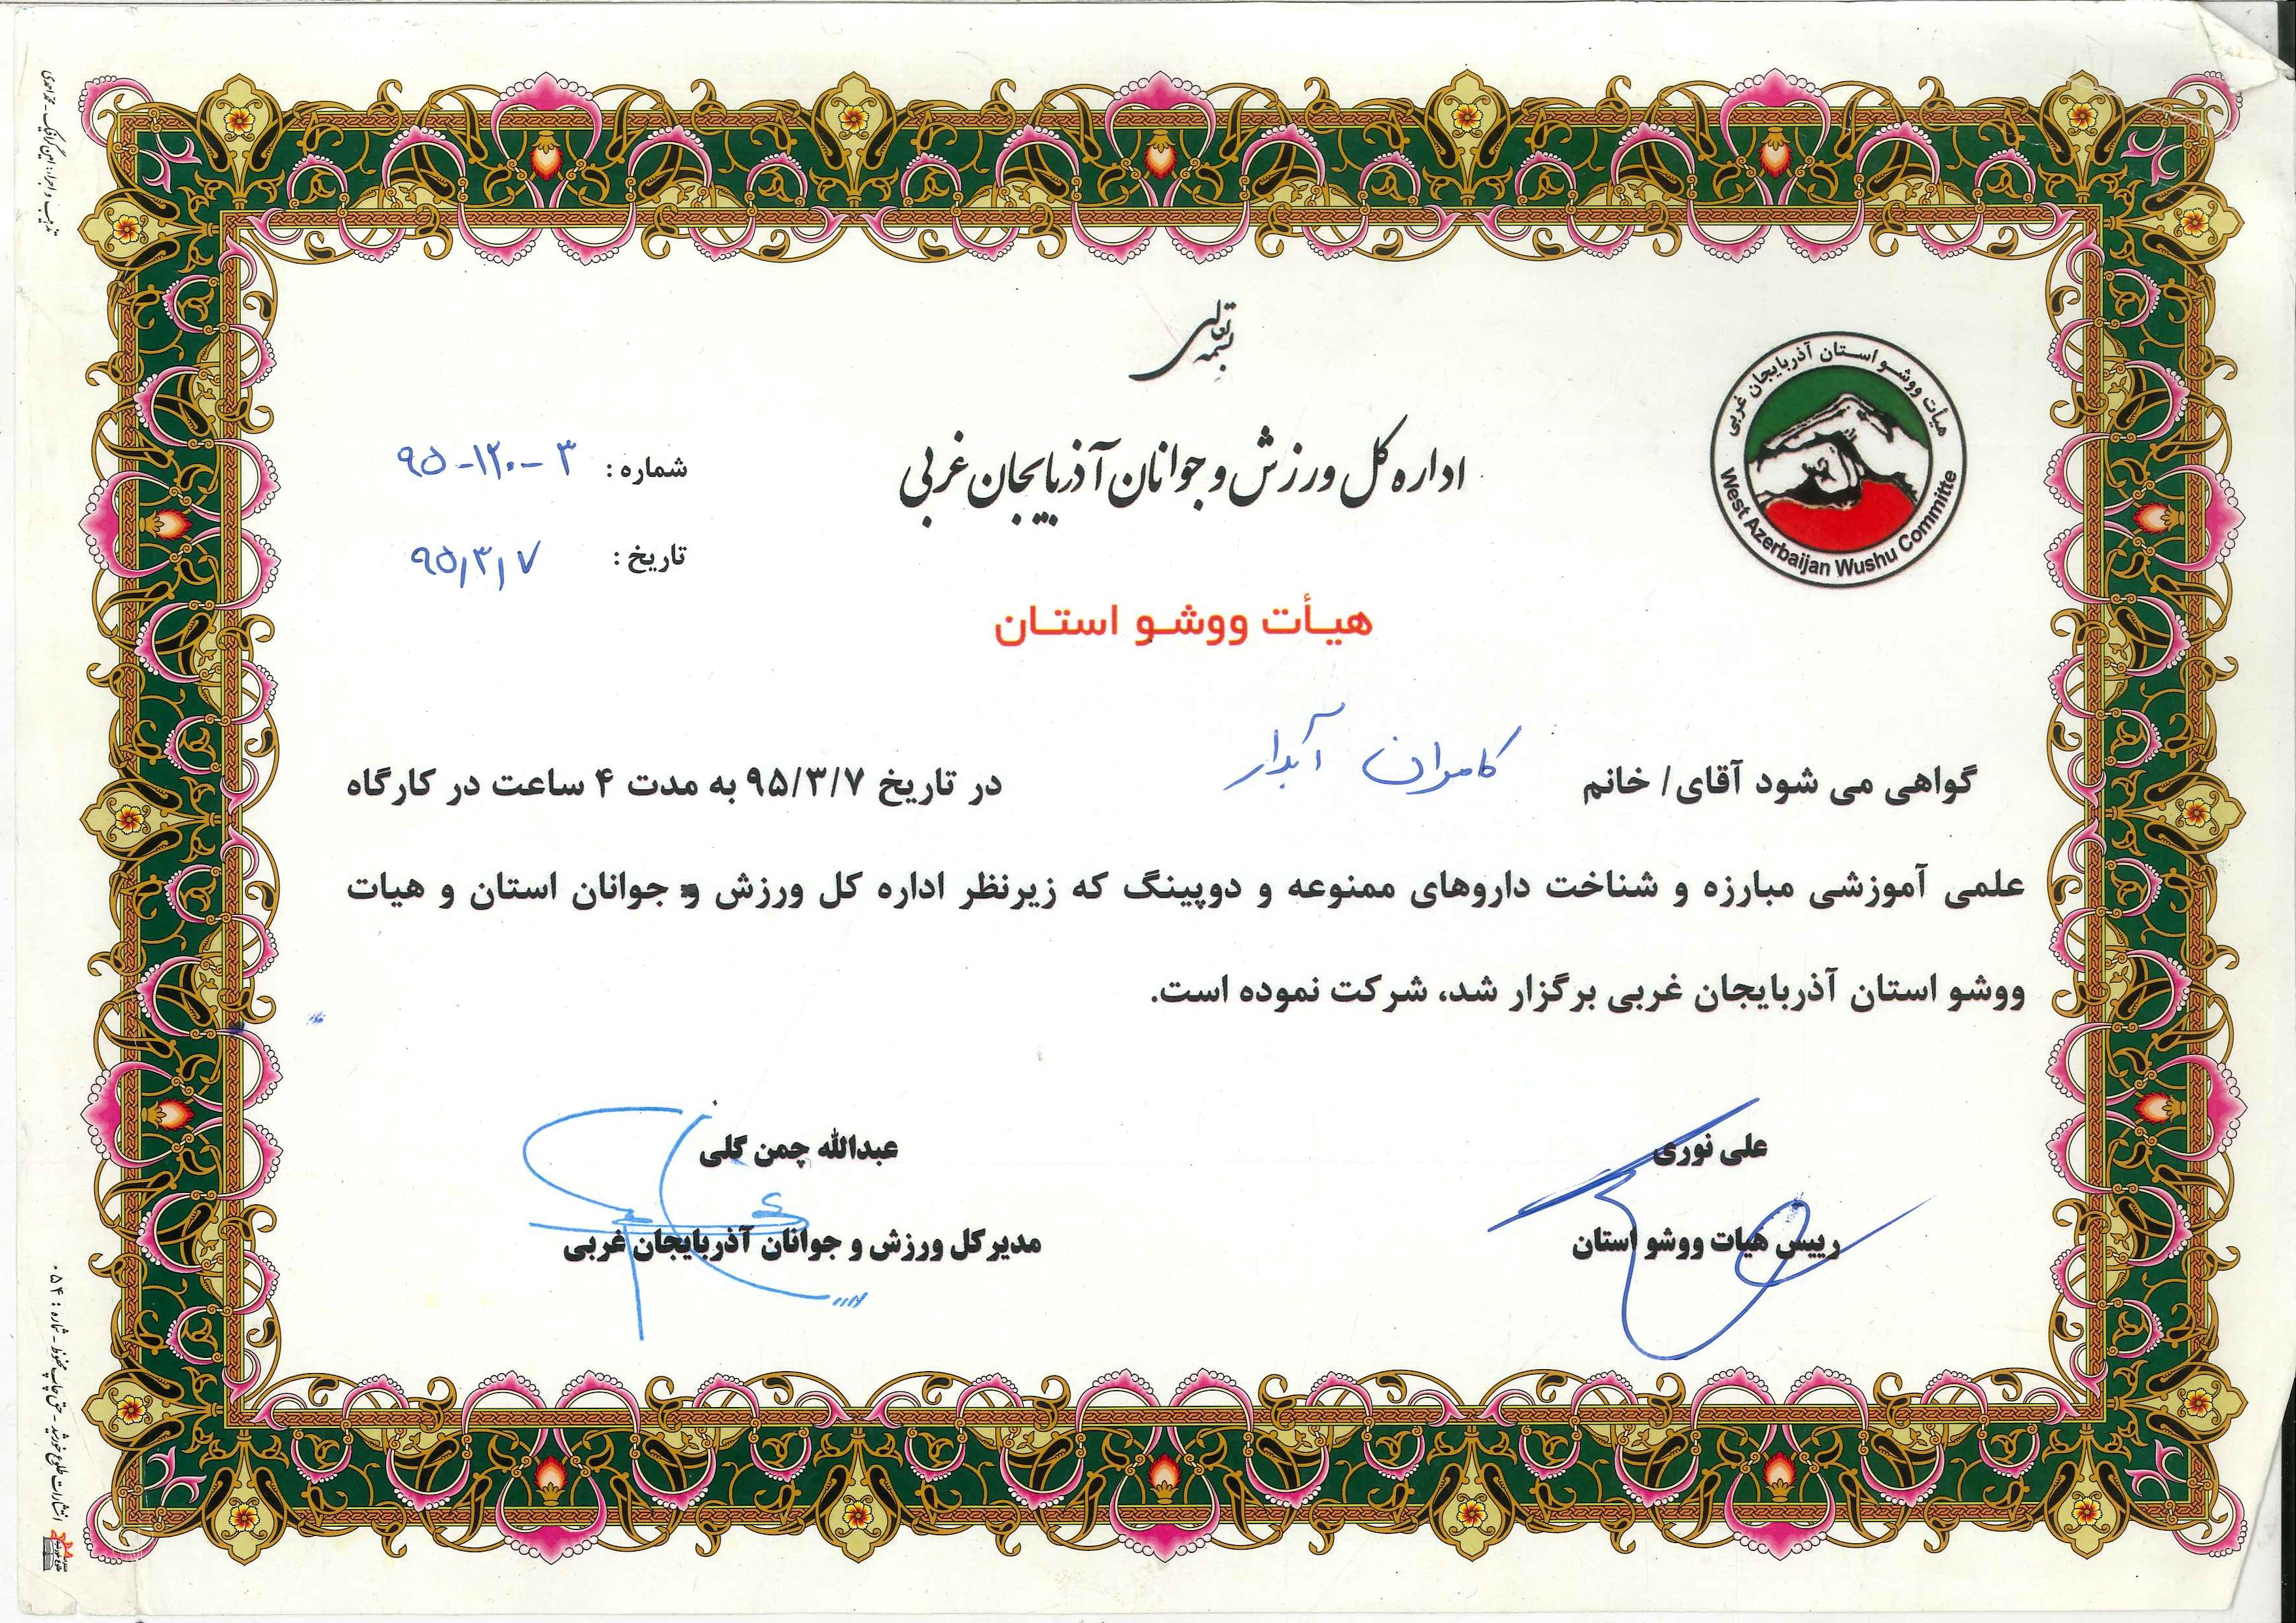 بسمه تعالی
اداره کل ورزش و جوانان آذربایجان غربی
هیأت ووشو استان آذربایجان غربی
West Azerbaijan Wushu Committe
شماره : ۳-۱۲۰-۹۵
تاریخ : ۹۵/۳/۷
هیـأت ووشـو اسـتـان
گواهی می شود آقای/ خانم کامران آبدار در تاریخ ۹۵/۳/۷ به مدت ۴ ساعت در کارگاه
علمی آموزشی مبارزه و شناخت داروهای ممنوعه و دوپینگ که زیرنظر اداره کل ورزش و جوانان استان و هیات
ووشو استان آذربایجان غربی برگزار شد، شرکت نموده است.
علی نوری
رییس هیات ووشو استان
عبدالله چمن گلی
مدیرکل ورزش و جوانان آذربایجان غربی
تذهیب و اجرا: امین گرافیک - محمد احمدی
انتشارات طلوع خورشید - حق چاپ محفوظ - شماره : ۰۵۴